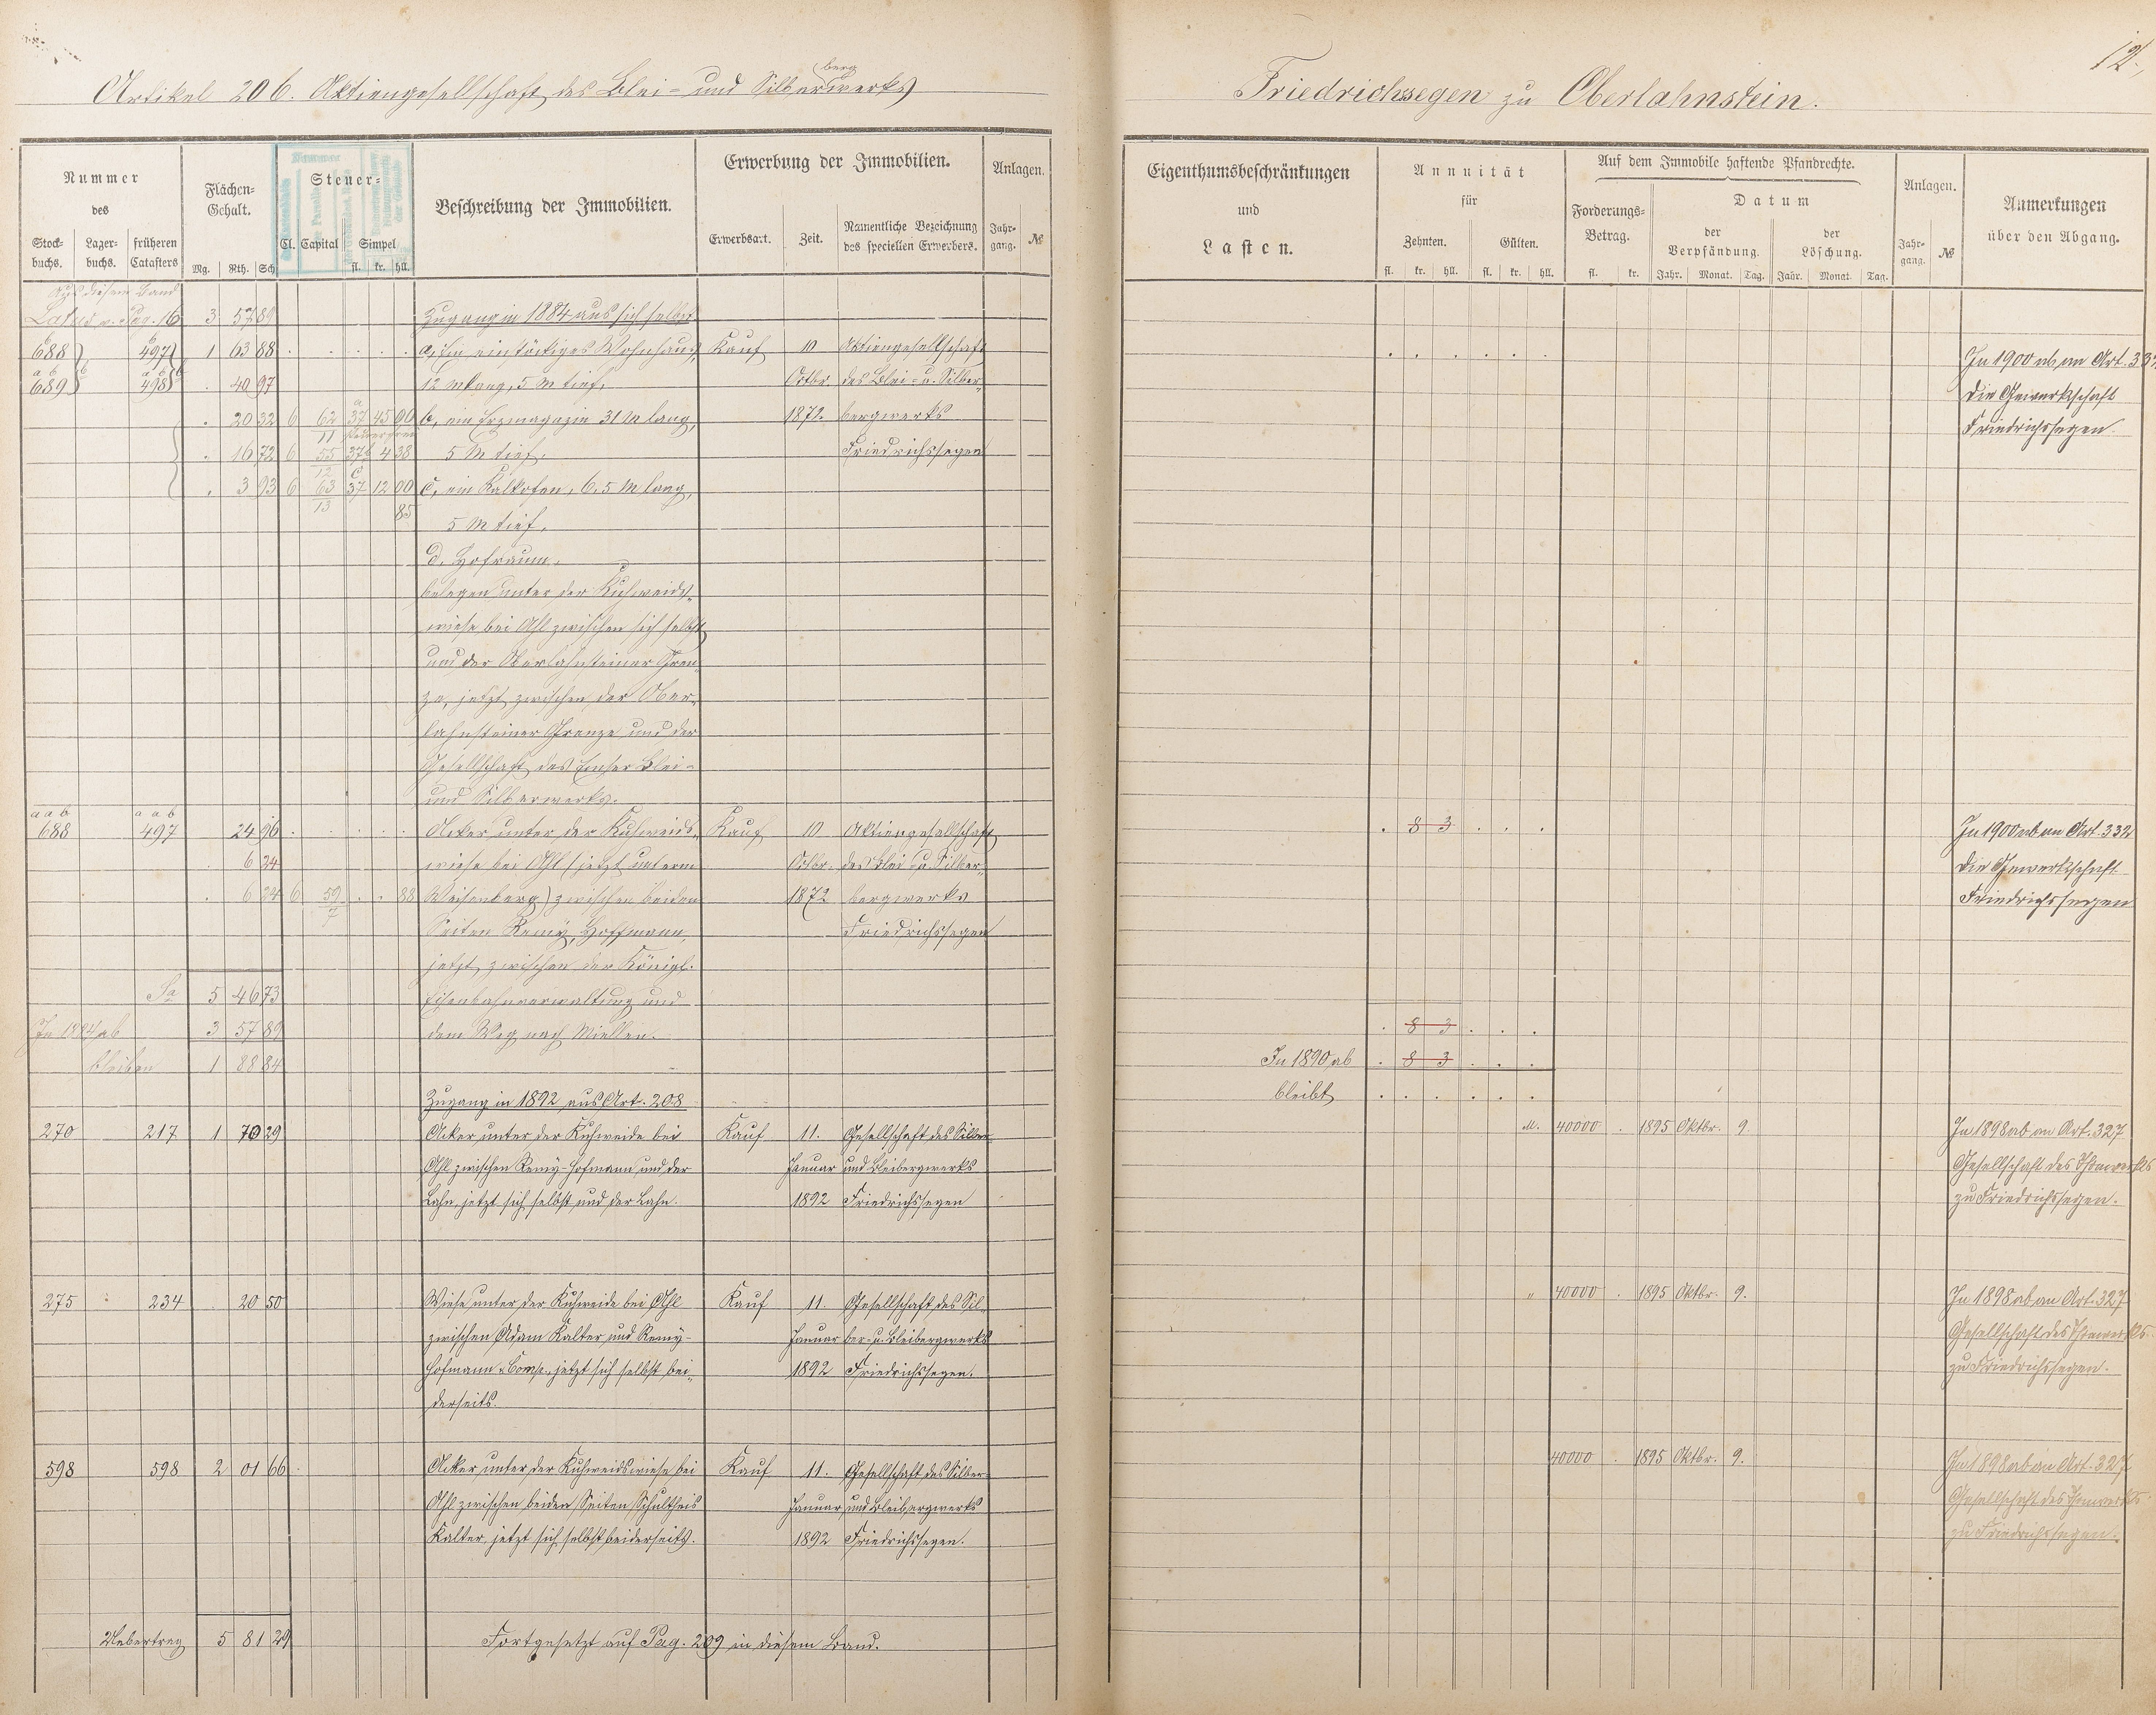 Artikel 206. Aktiengesellschaft des Blei- und Silberbergwerks
Friedrichssegen zu Oberlahnstein.
12.
Nummer
des
Stock-
buchs.
Lager-
buchs.
früheren
Catasters
Flächen-
Gehalt.
Mg. Rth. Sch
Steuer-
Cl. Capital Simpel
fl. kr. hll.
Beschreibung der Immobilien.
Erwerbung der Immobilien.
Erwerbsart. Zeit.
Namentliche Bezeichnung
des speciellen Erwerbers.
Anlagen.
Jahr-
gang. №
Eigenthumsbeschränkungen
und
Lasten.
Annuität
für
Zehnten. Gülten.
fl. kr. hll. fl. kr. hll.
Auf dem Immobile haftende Pfandrechte.
Forderungs-
Betrag.
fl. kr.
Datum
der
Verpfändung.
Jahr. Monat. Tag.
der
Löschung.
Jahr. Monat. Tag.
Anlagen.
Jahr-
gang. №
Anmerkungen
über den Abgang.
Aus diesem Band
Latus v. Pag. 16 3 57 89 Zugang in 1884 aus sich selbst
688 497 1 63 88 a, Ein einstöckiges Wohnhaus, Kauf 10 Aktiengesellschaft
689 498 40 97 12 M lang, 5 M tief, Octbr des Blei- u. Silber-
20 32 6 62 37 45 00 b, ein Erzmagazin 31 M lang, 1872. bergwerks
11
16 72 6 55 37 4 38 5 M tief, Friedrichssegen
12
3 93 6 63 37 12 00 c, ein Kalkofen, 6,5 M lang,
13 85 5 M tief,
d, Hofraum,
belegen unter der Kuhweids-
wiese bei Ahl zwischen sich selbst
und der Oberlahnsteiner Gren-
ze, jetzt zwischen der Ober-
lahnsteiner Grenze und der
Gesellschaft des Emser Blei-
und Silberwerks.
In 1900 ab an Art. 332
die Gewerkschaft
Friedrichssegen.
a a b a a b
688 497 24 96 Acker unter der Kuhweids- Kauf 10 Aktiengesellschaft
6 24 wiese bei Ahl (jetzt unterm Octbr. des Blei- u. Silber-
6 24 6 59 88 Weisenberg) zwischen beiden 1872 bergwerks
7 Seiten Remy, Hoffmann, Friedrichssegen
jetzt zwischen der Königl.
Sa 5 46 73 Eisenbahnverwaltung und
In 1884 ab 3 57 89 dem Weg nach Miellen.
bleiben 1 88 84
8 3
In 1900 ab an Art. 332
die Gewerkschaft
Friedrichssegen
8 3
In 1890 ab 8 3
bleibt
Zugang in 1892 aus Art. 208
270 217 1 70 29 Acker unter der Kuhweide bei Kauf 11. Gesellschaft des Silber-
Ahl zwischen Remy-Hofmann und der Januar und Bleibergwerks
Lahn, jetzt sich selbst und der Lahn. 1892 Friedrichssegen
M. 40000 1895 Oktbr. 9
In 1898 ab an Art. 327
Gesellschaft des Thonwerks
zu Friedrichssegen.
275 234 20 50 Wiese unter der Kuhweide bei Ahl Kauf 11. Gesellschaft des Sil-
zwischen Adam Kalter und Remy- Januar ber- u. Bleibergwerks
Hofmann & Comp. jetzt sich selbst bei- 1892 Friedrichssegen.
derseits.
" 40000 1895 Oktbr. 9.
In 1898 ab an Art. 327
Gesellschaft des Thonwerks
zu Friedrichssegen.
598 598 2 01 66 Acker unter der Kuhweidswiese bei Kauf 11. Gesellschaft des Silber-
Ahl zwischen beiden Seiten Schultheis Januar und Bleibergwerks
Kalter, jetzt sich selbst beiderseits. 1892 Friedrichssegen.
40000 1895 Oktbr. 9.
In 1898 ab an Art. 327
Gesellschaft des Thonwerks
zu Friedrichssegen.
Uebertrag 5 81 29 Fortgesetzt auf Pag. 209 in diesem Band.